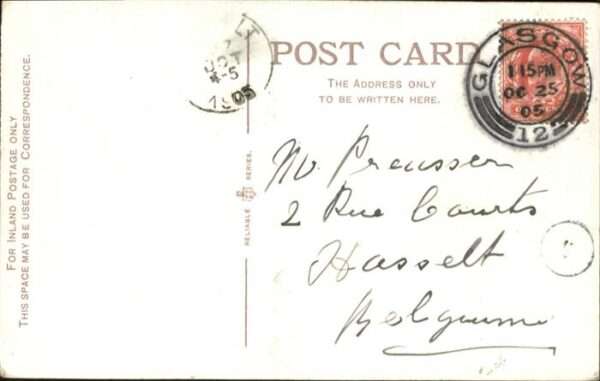 FOR INLAND POSTAGE ONLY
THIS SPACE MAY BE USED FOR CORRESPONDENCE.
LT
OCT
4-5
1905
RELIABLE SERIES.
POST CARD
THE ADDRESS ONLY
TO BE WRITTEN HERE.
GLASGOW
1 15PM
OC 25
05
12
Preusser
2 Rue Courts
Hasselt